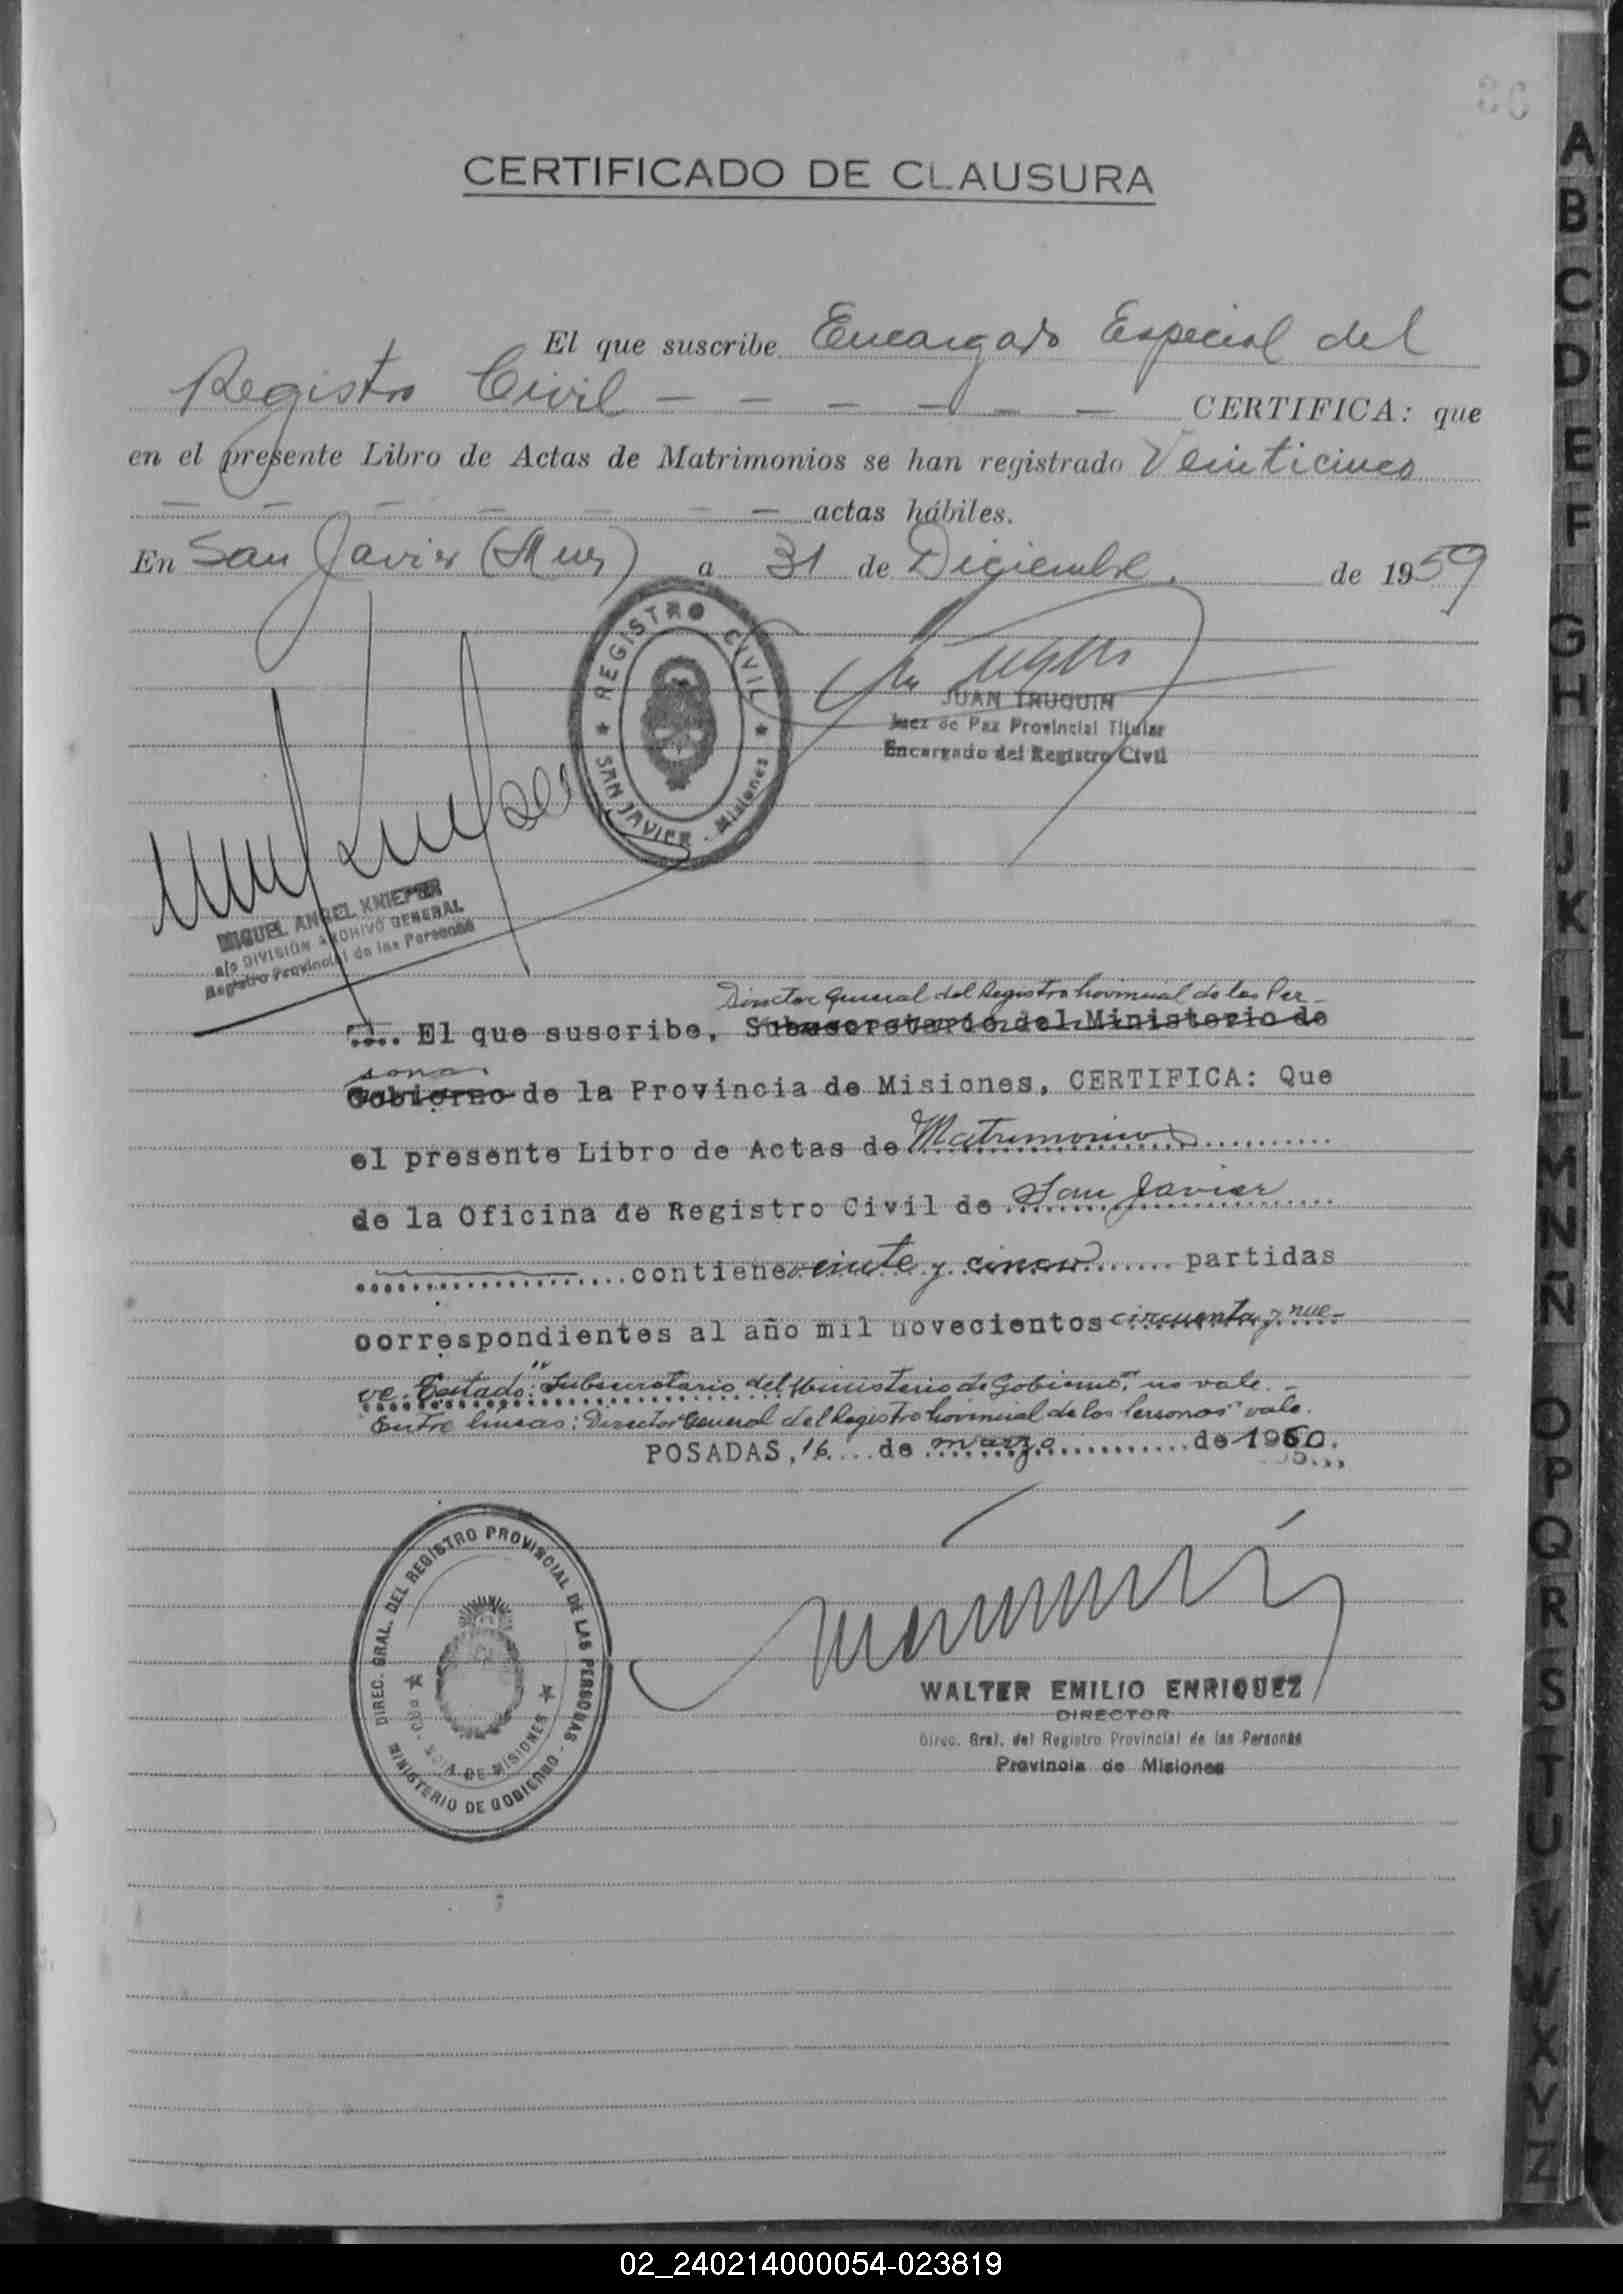 CERTIFICADO DE CLAUSURA
El que suscribe Encargado Especial del
Registro Civil - - - - - - CERTIFICA: que
en el presente Libro de Actas de Matrimonios se han registrado Veinticinco
- - - - - - - actas hábiles.
En San Javier (Mnes) a 31 de Diciembre. de 1959
REGISTRO CIVIL
SAN JAVIER - Misiones
JUAN TRUQUIN
Juez de Paz Provincial Titular
Encargado del Registro Civil
MIGUEL ANGEL KNIEPER
a/c DIVISIÓN ARCHIVO GENERAL
Registro Provincial de las Personas
Director General del Registro Provincial de las Per-
.... El que suscribe, Subsecretario del Ministerio de
sonas
Gobierno de la Provincia de Misiones, CERTIFICA: Que
el presente Libro de Actas de Matrimonios
de la Oficina de Registro Civil de San Javier
contiene veinte y cinco partidas
correspondientes al año mil novecientos cincuenta y nue-
ve. Testado: "Subsecretario del Ministerio de Gobierno", no vale.-
Entre lineas: "Director General del Registro Provincial de las Personas" vale.
POSADAS, 16 de marzo de 1960.
DIREC. GRAL. DEL REGISTRO PROVINCIAL DE LAS PERSONAS
MINISTERIO DE GOBIERNO
DE MISIONES
WALTER EMILIO ENRIQUEZ
DIRECTOR
Direc. Gral. del Registro Provincial de las Personas
Provincia de Misiones
A
B
C
D
E
F
G
H
I
J
K
L
LL
M
N
Ñ
O
P
Q
R
S
T
U
V
W
X
Y
Z
02_240214000054-023819